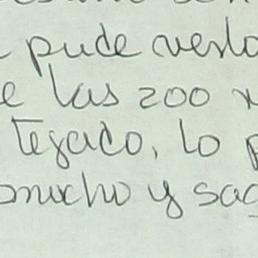 pude verlo
e las 200
tejado, lo p
mucho y sac